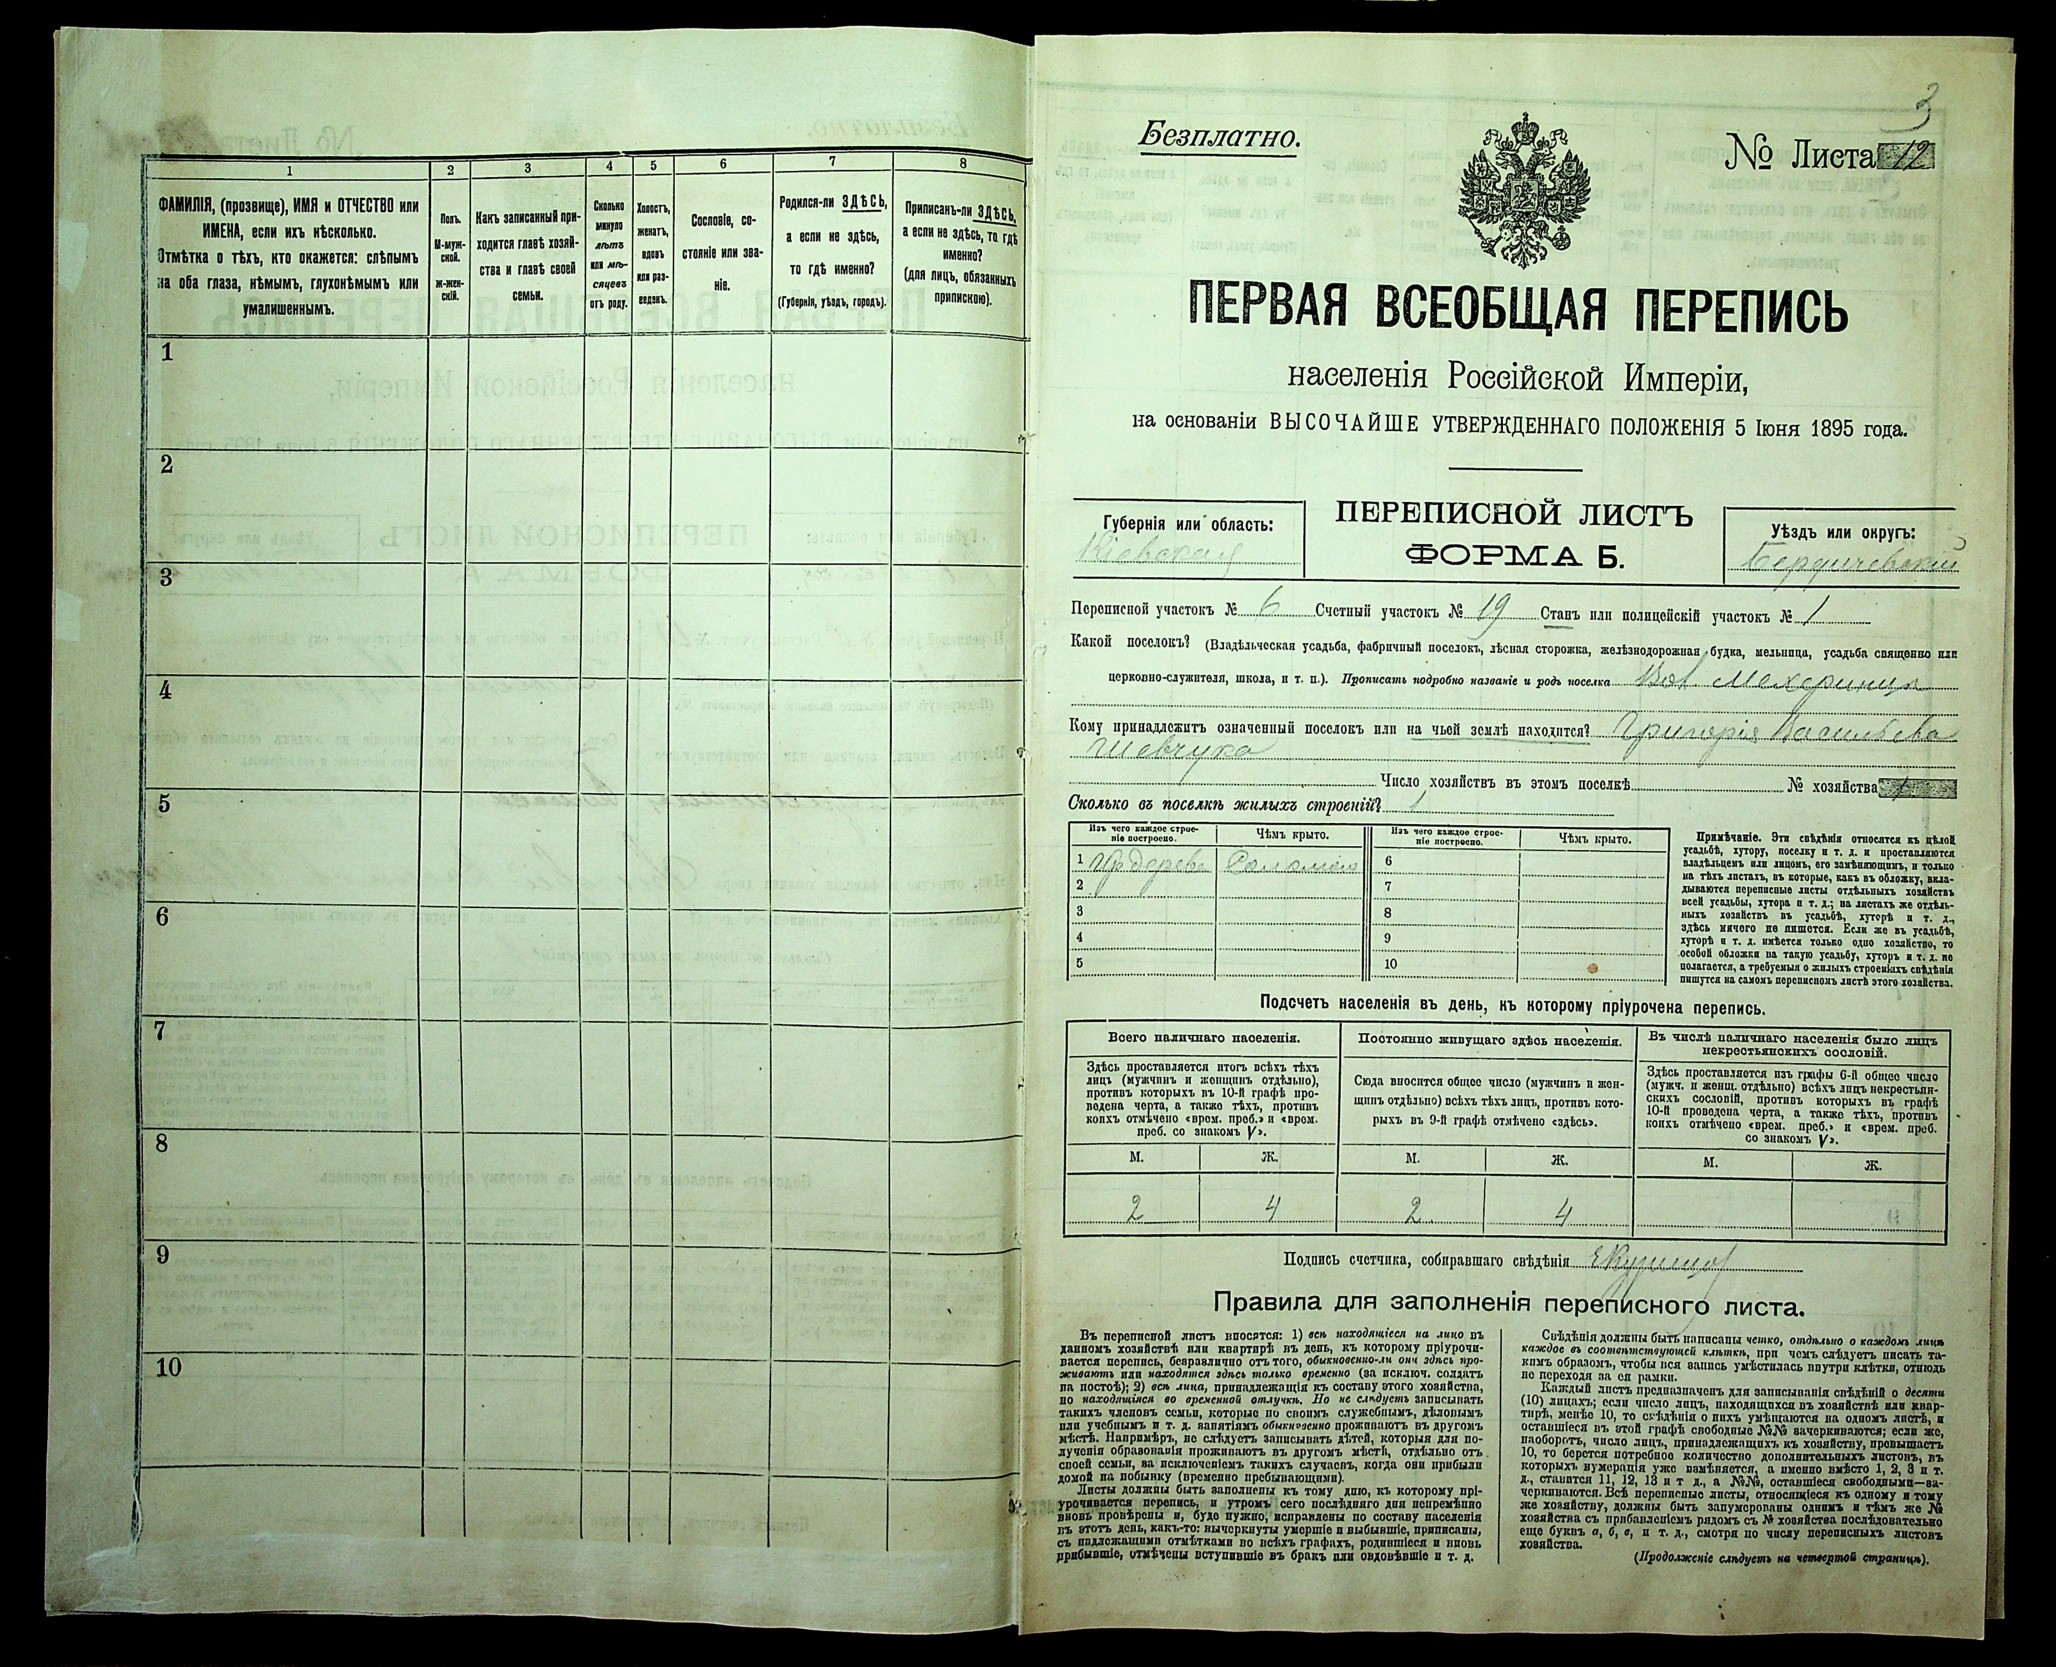 1
2
3
4
5
6
7
8
ФАМИЛІЯ, (прозвище), ИМЯ и ОТЧЕСТВО или
ИМЕНА, если ихъ нѣсколько.
Отмѣтка о тѣхъ, кто окажется: слѣпымъ
на оба глаза, нѣмымъ, глухонѣмымъ или
умалишеннымъ.
Полъ.
М-муж-
ской.
ж-жен-
скій.
Какъ записанный при-
ходится главѣ хозяй-
ства и главѣ своей
семьи.
Сколько
минуло
лѣтъ
или мѣ-
сяцевъ
отъ роду.
Холостъ,
женатъ,
вдовъ
или раз-
веденъ.
Сословіе, со-
стояніе или зва-
ніе.
Родился-ли ЗДѢСЬ,
а если не здѣсь,
то гдѣ именно?
(Губернія, уѣздъ, городъ).
Приписанъ-ли ЗДѢСЬ,
а если не здѣсь, то гдѣ
именно?
(для лицъ, обязанныхъ
припискою).
1
2
3
4
5
6
7
8
9
10
3
Безплатно.
№ Листа 12
ПЕРВАЯ ВСЕОБЩАЯ ПЕРЕПИСЬ
населенія Россійской Имперіи,
на основаніи ВЫСОЧАЙШЕ УТВЕРЖДЕННАГО ПОЛОЖЕНІЯ 5 Іюня 1895 года.
Губернія или область:
Кіевская
ПЕРЕПИСНОЙ ЛИСТЪ
ФОРМА Б.
Уѣздъ или округъ:
Бердичевскій
Переписной участокъ № 6 Счетный участокъ № 19 Станъ или полицейскій участокъ № 1
Какой поселокъ? (Владѣльческая усадьба, фабричный поселокъ, лѣсная сторожка, желѣзнодорожная будка, мельница, усадьба священно или
церковно-служителя, школа, и т. п.). Прописать подробно названіе и родъ поселка
Кому принадлежитъ означенный поселокъ или на чьей землѣ находится? Григорія Васильева
Шевчука
Число хозяйствъ въ этомъ поселкѣ № хозяйства 1
Сколько въ поселкѣ жилыхъ строеній? 1
Изъ чего каждое строе-
ніе построено.
Чѣмъ крыто.
Изъ чего каждое строе-
ніе построено.
Чѣмъ крыто.
1 Изъ дерева Соломою
2
3
4
5
6
7
8
9
10
Примѣчаніе. Эти свѣдѣнія относятся къ цѣлой
усадьбѣ, хутору, поселку и т. д. и проставляются
владѣльцемъ или лицомъ, его замѣняющимъ, и только
на тѣхъ листахъ, въ которые, какъ въ обложку, вкла-
дываются переписные листы отдѣльныхъ хозяйствъ
всей усадьбы, хутора и т. д.; на листахъ же отдѣль-
ныхъ хозяйствъ въ усадьбѣ, хуторѣ и т. д.,
здѣсь ничего не пишется. Если же въ усадьбѣ,
хуторѣ и т. д. имѣется только одно хозяйство, то
особой обложки на такую усадьбу, хуторъ и т. д. не
полагается, а требуемыя о жилыхъ строеніяхъ свѣдѣнія
пишутся на самомъ переписномъ листѣ этого хозяйства.
Подсчетъ населенія въ день, къ которому пріурочена перепись.
Всего наличнаго населенія.
Здѣсь проставляется итогъ всѣхъ тѣхъ
лицъ (мужчинъ и женщинъ отдѣльно),
противъ которыхъ въ 10-й графѣ про-
ведена черта, а также тѣхъ, противъ
коихъ отмѣчено «врем. преб.» и «врем.
преб. со знакомъ V».
Постоянно живущаго здѣсь населенія.
Сюда вносится общее число (мужчинъ и жен-
щинъ отдѣльно) всѣхъ тѣхъ лицъ, противъ кото-
рыхъ въ 9-й графѣ отмѣчено «здѣсь».
Въ числѣ наличнаго населенія было лицъ
некрестьянскихъ сословій.
Здѣсь проставляется изъ графы 6-й общее число
(мужч. и женщ. отдѣльно) всѣхъ лицъ некрестьян-
скихъ сословій, противъ которыхъ въ графѣ
10-й проведена черта, а также тѣхъ, противъ
коихъ отмѣчено «врем. преб.» и «врем. преб.
со знакомъ V».
М. Ж. М. Ж. М. Ж.
2 4 2 4
Подпись счетчика, собиравшаго свѣдѣнія
Правила для заполненія переписного листа.
Въ переписной листъ вносятся: 1) всѣ находящіеся на лицо въ
данномъ хозяйствѣ или квартирѣ въ день, къ которому пріурочи-
вается перепись, безразлично отъ того, обыкновенно-ли они здѣсь про-
живаютъ или находятся здѣсь только временно (за исключ. солдатъ
на постоѣ); 2) всѣ лица, принадлежащія къ составу этого хозяйства,
но находящіяся во временной отлучкѣ. Но не слѣдуетъ записывать
такихъ членовъ семьи, которые по своимъ служебнымъ, дѣловымъ
или учебнымъ и т. д. занятіямъ обыкновенно проживаютъ въ другомъ
мѣстѣ. Напримѣръ, не слѣдуетъ записывать дѣтей, которыя для по-
лученія образованія проживаютъ въ другомъ мѣстѣ, отдѣльно отъ
своей семьи, за исключеніемъ такихъ случаевъ, когда они прибыли
домой на побывку (временно пребывающими).
Листы должны быть заполнены къ тому дню, къ которому прі-
урочивается перепись, и утромъ сего послѣдняго дня непремѣнно
вновь провѣрены и, буде нужно, исправлены по составу населенія
въ этотъ день, какъ-то: вычеркнуты умершіе и выбывшіе, приписаны,
съ надлежащими отмѣтками во всѣхъ графахъ, родившіеся и вновь
прибывшіе, отмѣчены вступившіе въ бракъ или овдовѣвшіе и т. д.
Свѣдѣнія должны быть написаны четко, отдѣльно о каждомъ лицѣ
каждое въ соотвѣтствующей клѣткѣ, при чемъ слѣдуетъ писать та-
кимъ образомъ, чтобы вся запись умѣстилась внутри клѣтки, отнюдь
не переходя за ея рамки.
Каждый листъ предназначенъ для записыванія свѣдѣній о десяти
(10) лицахъ; если число лицъ, находящихся въ хозяйствѣ или квар-
тирѣ, менѣе 10, то свѣдѣнія о нихъ умѣщаются на одномъ листѣ, и
оставшіеся въ этой графѣ свободные №№ зачеркиваются; если же,
наоборотъ, число лицъ, принадлежащихъ къ хозяйству, превышаетъ
10, то берется потребное количество дополнительныхъ листовъ, въ
которыхъ нумерація уже измѣняется, а именно вмѣсто 1, 2, 3 и т.
д., ставятся 11, 12, 13 и т д., а №№, оставшіеся свободными—за-
черкиваются. Всѣ переписные листы, относящіеся къ одному и тому
же хозяйству, должны быть занумерованы однимъ и тѣмъ же №
хозяйства съ прибавленіемъ рядомъ съ № хозяйства послѣдовательно
еще буквъ а, б, в, и т. д., смотря по числу переписныхъ листовъ
хозяйства.
(Продолженіе слѣдуетъ на четвертой страницѣ).